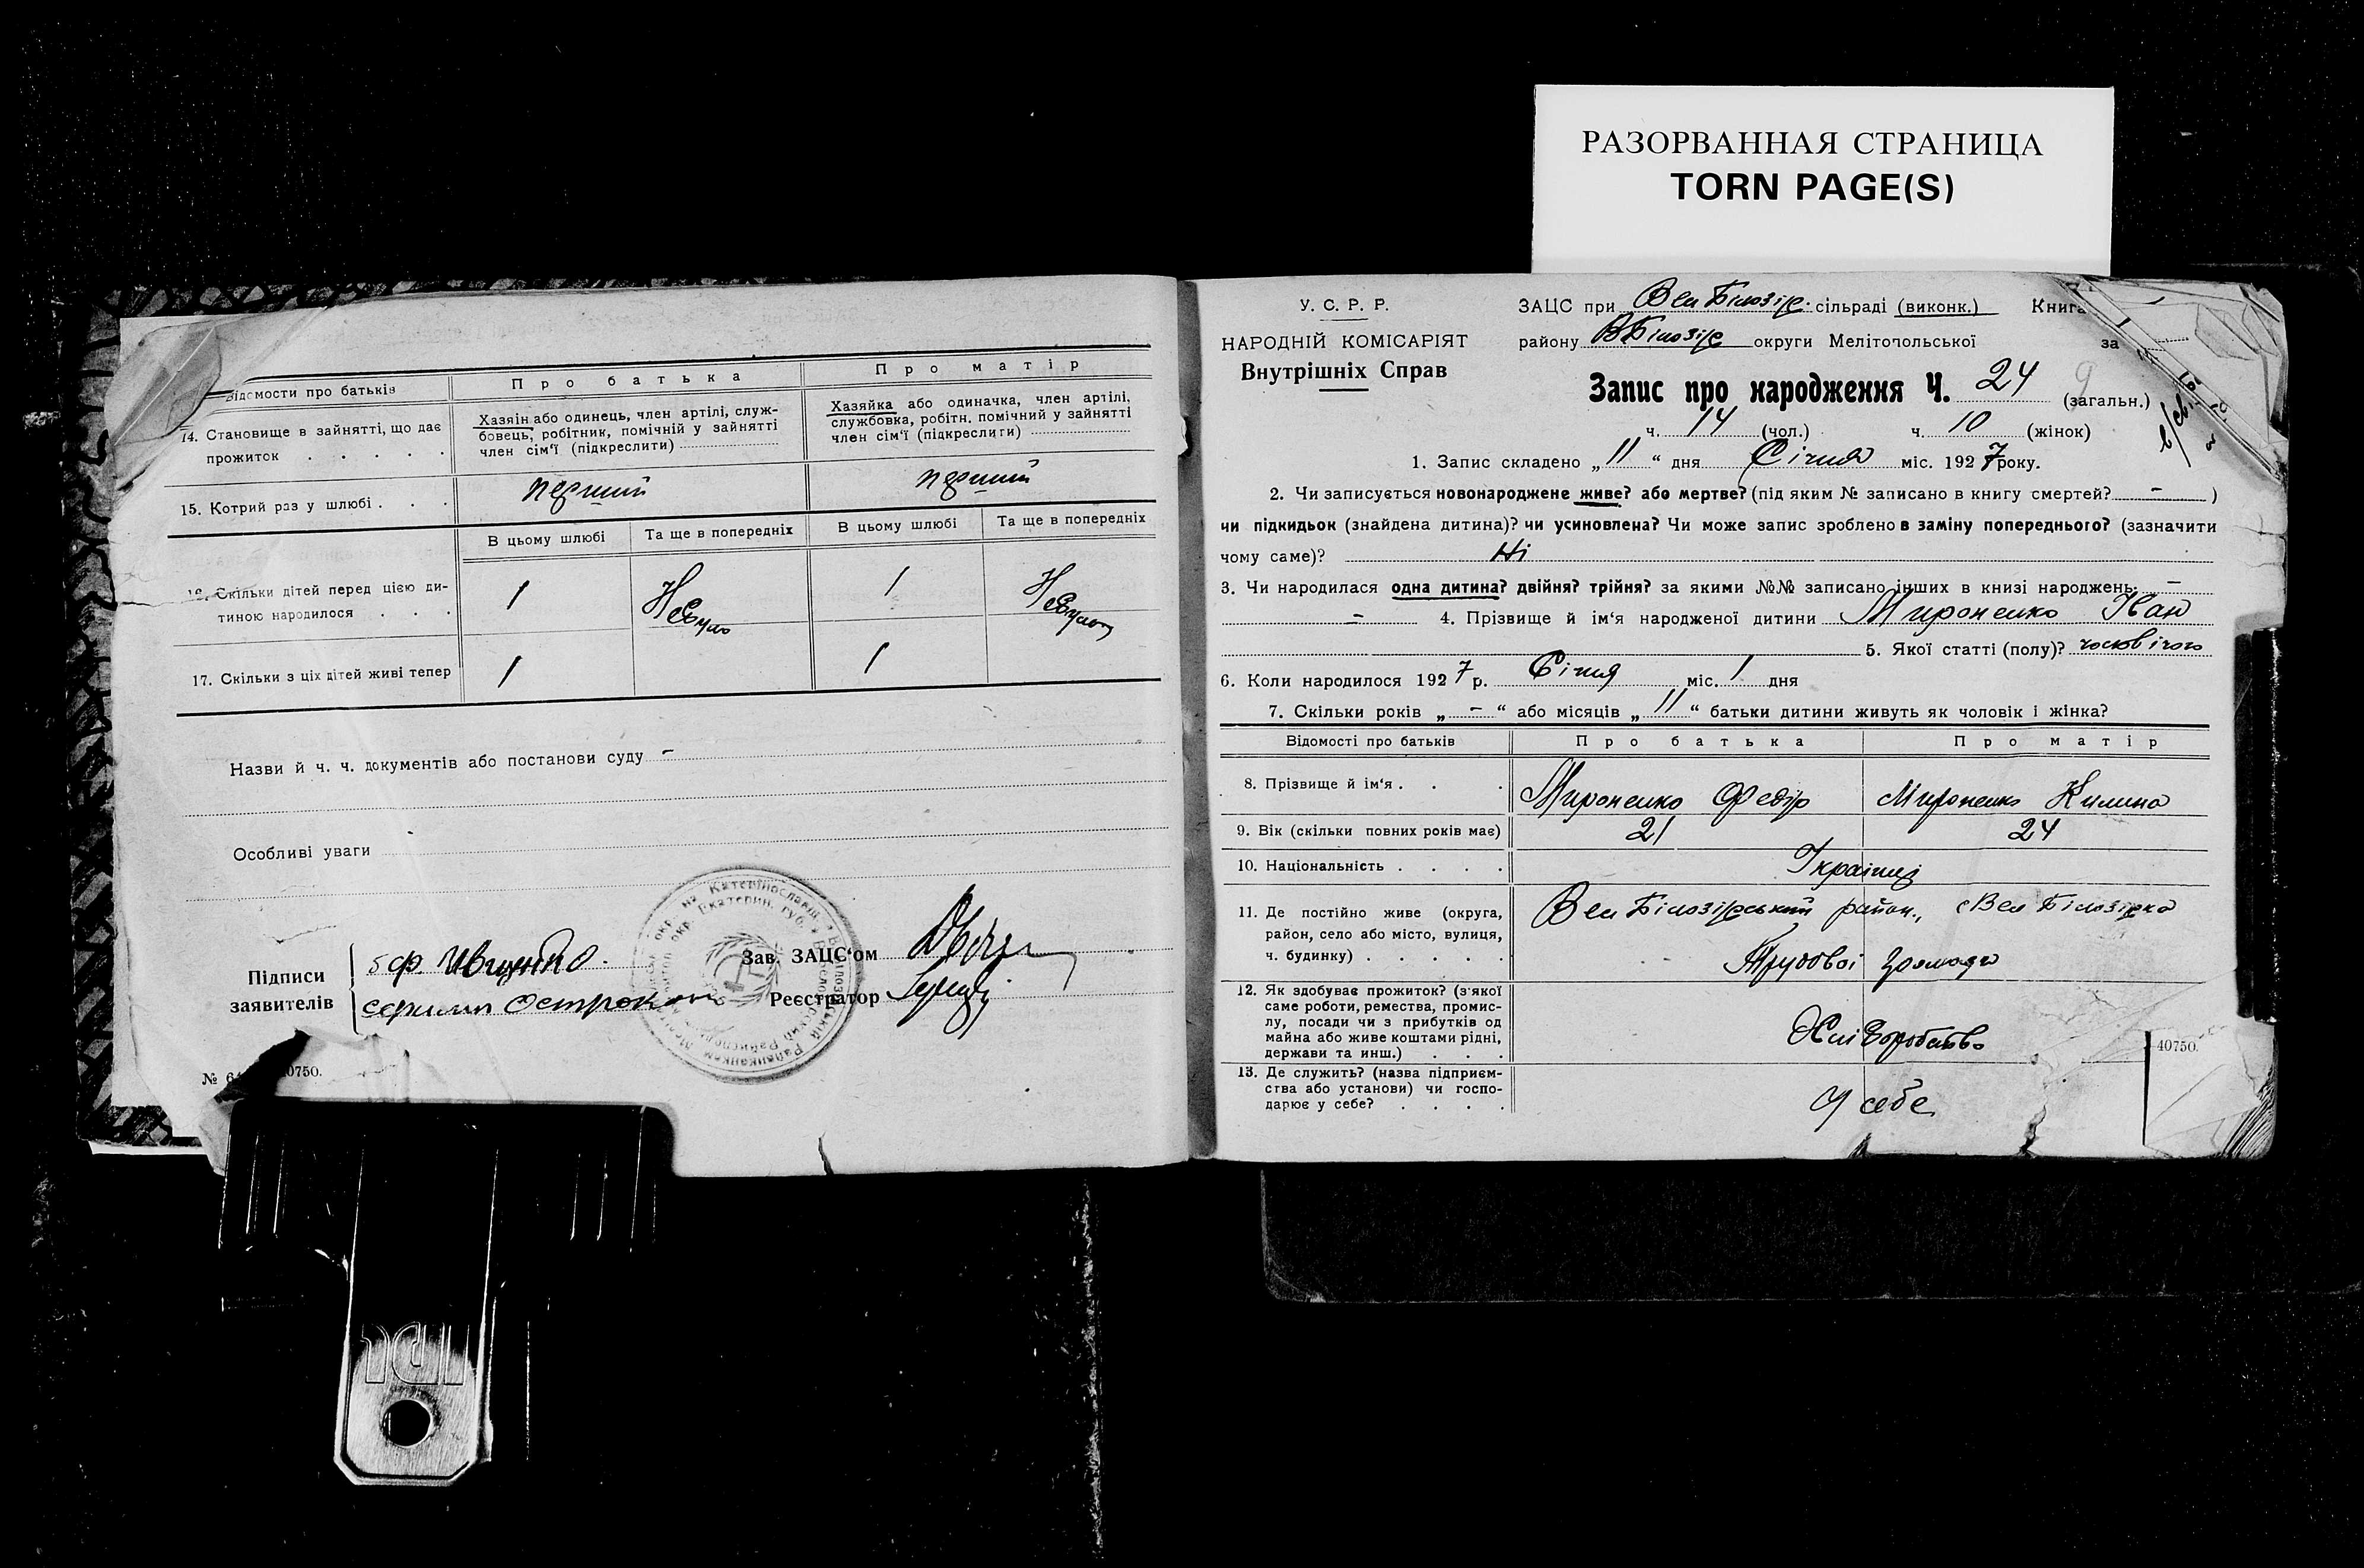 РАЗОРВАННАЯ СТРАНИЦА
TORN PAGE(S)
Відомости про батьків
Про батька
Про матір
14. Становище в зайнятті, що дає прожиток . . . . .
Хазяін або одинець, член артілі, служ-
бовець, робітник, помічній у зайнятті
член сім'ї (підкреслити)
Хазяйка або одиначка, член артілі,
службовка, робітн. помічний у зайнятті
член сім'ї (підкреслити)
15. Котрий раз у шлюбі . . .
перший
перший
В цьому шлюбі
Та ще в попередніх
В цьому шлюбі
Та ще в попередніх
16. Скільки дітей перед цією ди-
тиною народилося . . .
1
Небуло
1
Небуло
17. Скільки з ціх дітей живі тепер
1
1
Назви й ч. ч. документів або постанови суду –
Особливі уваги
Підписи
заявителів
Зав. ЗАЦС'ом
Реєстратор
№ 6 0750.
У. С. Р. Р.
НАРОДНІЙ КОМІСАРІЯТ
Внутрішніх Справ
ЗАЦС при Вел Білозір. сільраді (виконк.) Книга
району ВБілозір округи Мелітопольської за
Запис про народження Ч. 24 (загальн.) 9
ч. 14 (чол.) ч. 10 (жінок)
1. Запис складено „11“ дня Січня міс. 1927 року.
2. Чи записується новонароджене живе? або мертве? (під яким № записано в книгу смертей? – )
чи підкидьок (знайдена дитина)? чи усиновлена? Чи може запис зроблено в заміну попереднього? (зазначити
чому саме)? Ні
3. Чи народилася одна дитина? двійня? трійня? за якими №№ записано інших в книзі народжень –
– 4. Прізвище й ім'я народженої дитини Мироненко Іван
5. Якої статті (полу)? чоловічого
6. Коли народилося 1927 р. Січня міс. 1 дня
7. Скільки років „ – “ або місяців „11“ батьки дитини живуть як чоловік і жінка?
Відомості про батьків
Про батька
Про матір
8. Прізвище й ім'я . . .
Мироненко Федір
Мироненко Килина
9. Вік (скільки повних років має)
21
24
10. Національність . . . .
Українці
11. Де постійно живе (округа,
район, село або місто, вулиця,
ч. будинку) . . . . .
Вел Білозірський район., с Вел Білозірка
Трудової громади
12. Як здобуває прожиток? (з якої
саме роботи, ремества, промис-
лу, посади чи з прибутків од
майна або живе коштами рідні,
держави та инш.) . . .
Хліборобство
13. Де служить? (назва підприєм-
ства або установи) чи госпо-
дарює у себе? . . . .
У себе
40750.